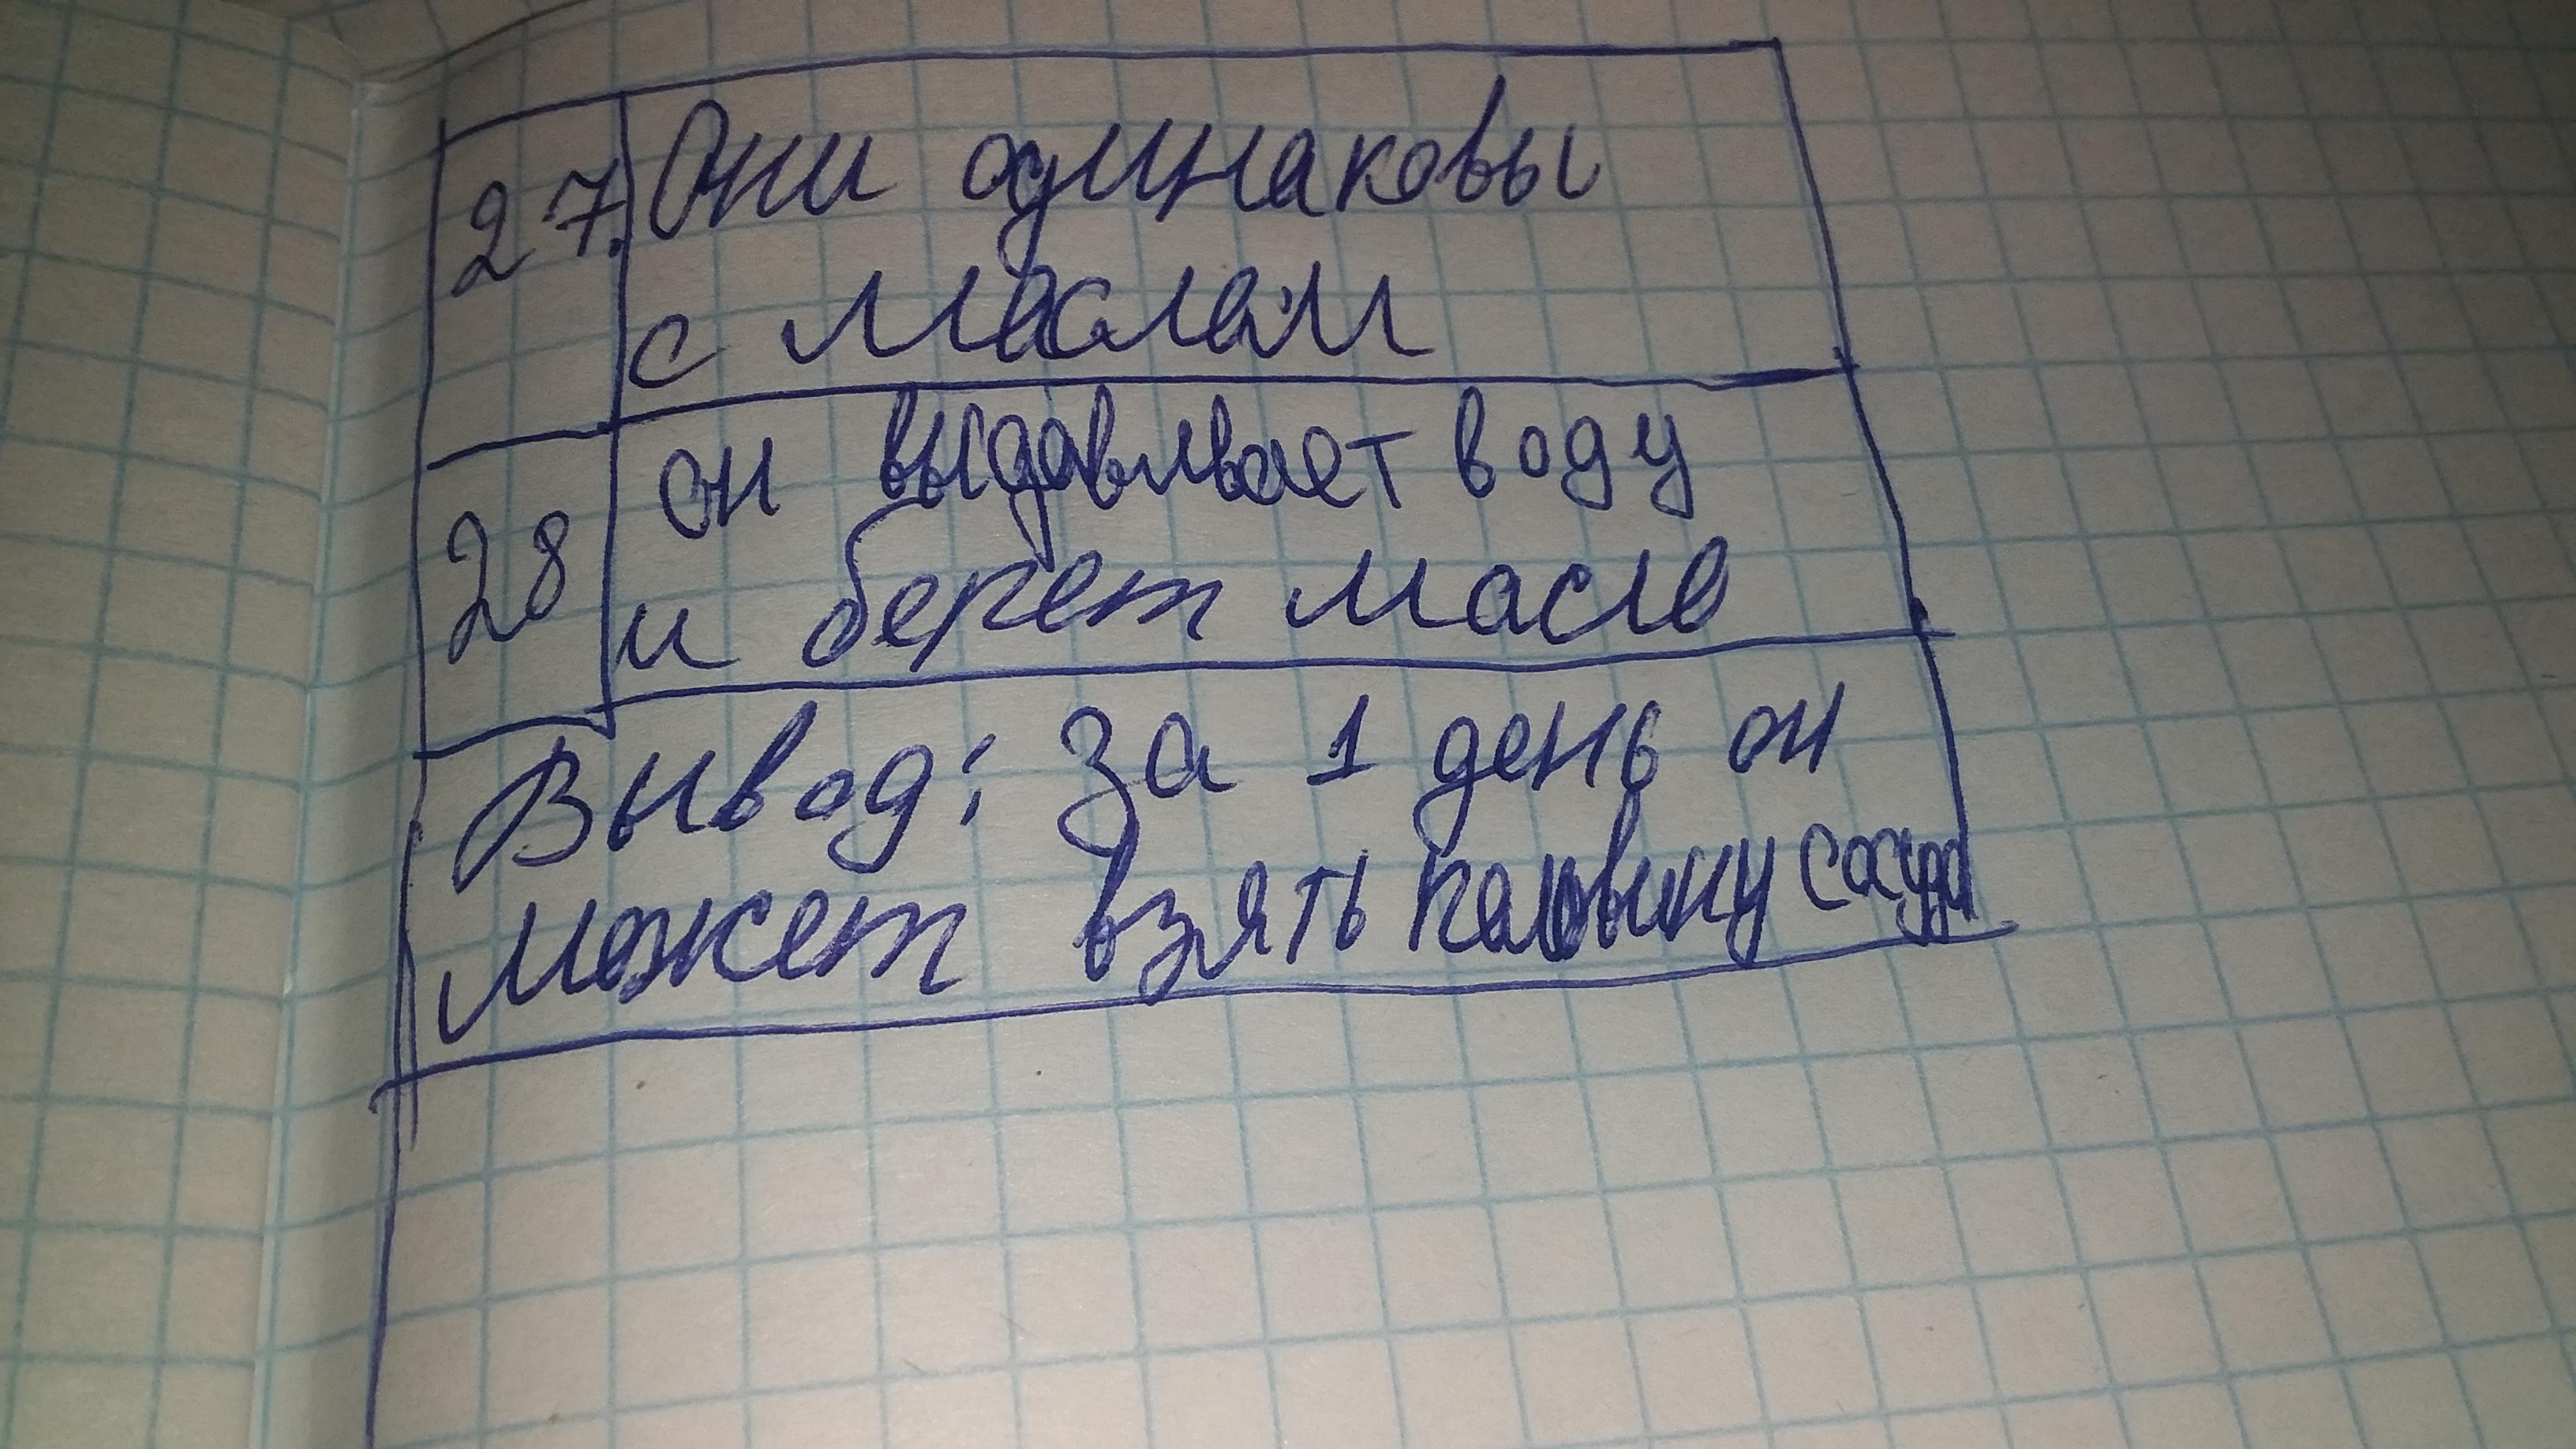 27. Они одинаковы
с маслам
28 он выдавлвает воду
и берет масло
Вывод: за 1 день он
может взять половину сосуда